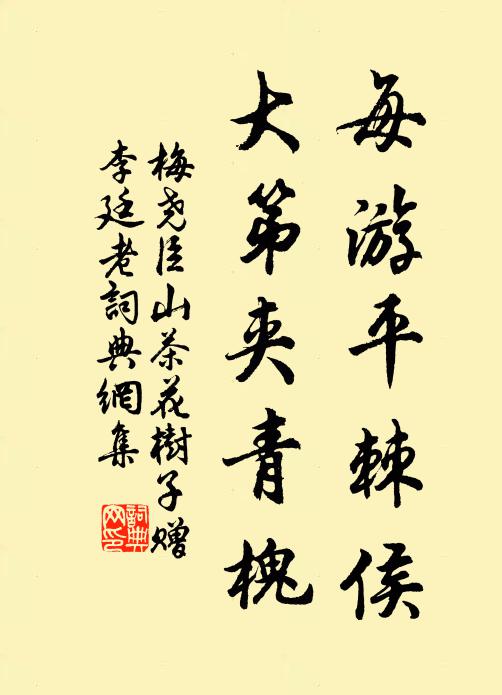 每游平棘侯
大第夹青槐
梅尧臣山茶花樹子赠
李廷老詞典網集
詞典
网印